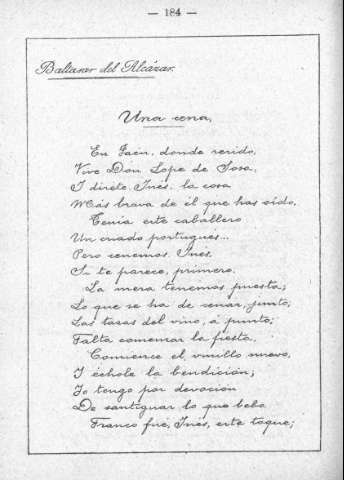 — 184 —
Baltasar del Alcázar.
Una cena.
En Jaén, donde resido,
Vive Don Lope de Sosa,
I diréte, Inés, la cosa
Más brava de él que has oído.
Tenía este caballero
Un criado portugués...
Pero cenemos, Inés,
Si te parece, primero.
La mesa tenemos puesta;
Lo que se ha de cenar, junto;
Las tazas del vino, á punto;
Falta comenzar la fiesta.
Comience el vinillo nuevo,
I échole la bendición;
Io tengo por devoción
De santiguar lo que bebo.
Franco fué, Inés, este toque;